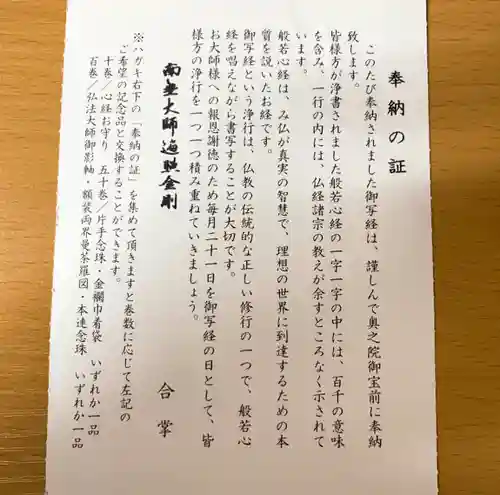 奉納の証
このたび奉納されました御写経は、謹しんで奥之院御宝前に奉納
致します。
皆様方が浄書されました般若心経の一字一字の中には、百千の意味
を含み、一行の内には、仏経諸宗の教えが余すところなく示されて
います。
般若心経は、み仏が真実の智慧で、理想の世界に到達するための本
質を説いたお経です。
御写経という浄行は、仏教の伝統的な正しい修行の一つで、般若心
経を唱えながら書写することが大切です。
お大師様への報恩謝徳のため毎月二十一日を御写経の日として、皆
様方の浄行を一つ一つ積み重ねていきましょう。
南無大師遍照金剛
合掌
※ハガキ右下の「奉納の証」を集めて頂きますと巻数に応じて左記の
ご希望の記念品と交換することができます。
十巻／心経お守り 五十巻／片手念珠・金襴巾着袋 いずれか一品
百巻／弘法大師御影軸・額装両界曼荼羅図・本連念珠 いずれか一品